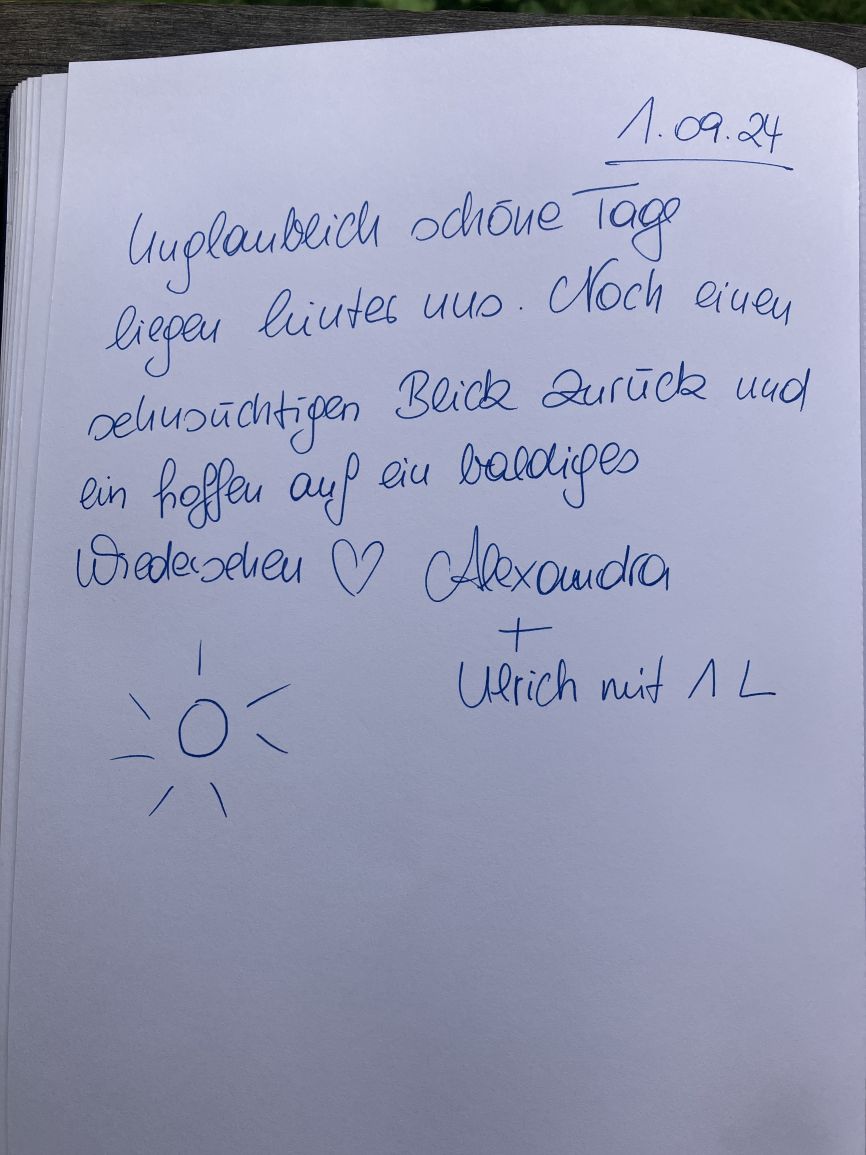 1.09.24
Unglaublich schöne Tage
liegen hinter uns. Noch einen
sehnsüchtigen Blick zurück und
ein hoffen auf ein baldiges
Wiedersehen ♡ Alexandra
+
Ulrich mit 1 L